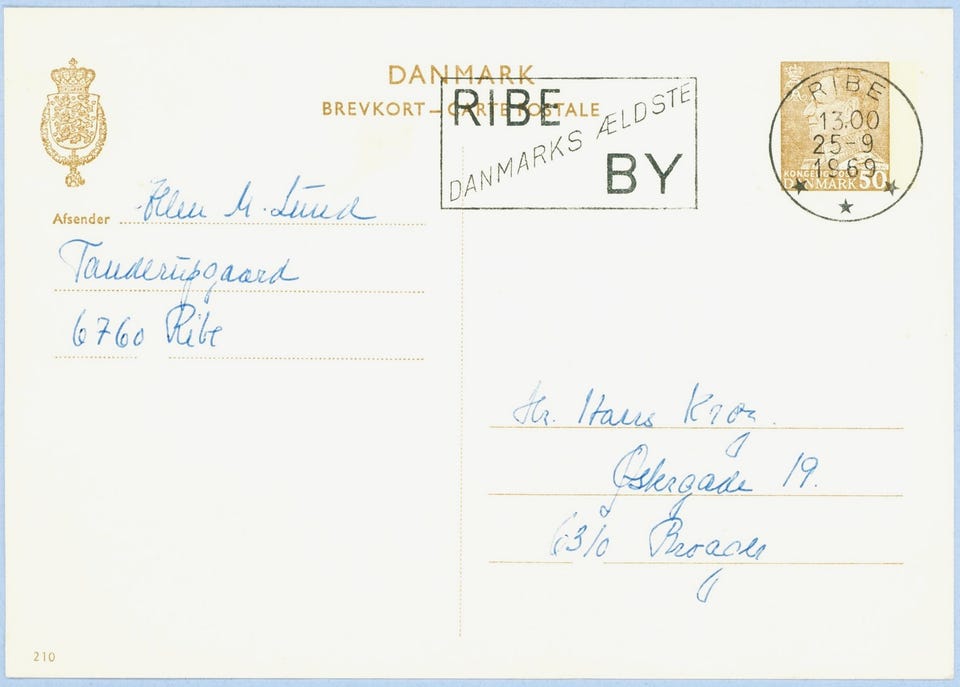 DANMARK
BREVKORT – CARTE POSTALE
RIBE
DANMARKS ÆLDSTE
BY
RIBE
-13.00
25-9
1969
DANMARK 50
Afsender Ellen M. Lund
Tanderupgaard
6760 Ribe
Hr. Hans Krog.
Østergade 19.
6310 Broager
210